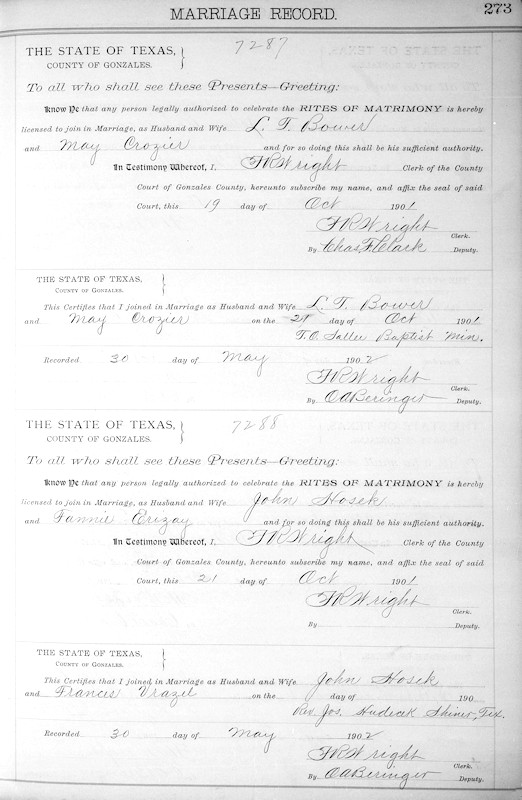 MARRIAGE RECORD. 273
THE STATE OF TEXAS, 7287
COUNTY OF GONZALES.
To all who shall see these Presents—Greeting:
Know Ye that any person legally authorized to celebrate the RITES OF MATRIMONY is hereby
licensed to join in Marriage, as Husband and Wife L. T. Bower
and May Crozier and for so doing this shall be his sufficient authority.
In Testimony Whereof, I, F R Wright Clerk of the County
Court of Gonzales County, hereunto subscribe my name, and affix the seal of said
Court, this 19 day of Oct 1901
F R Wright
Clerk.
By Chas F. Clack Deputy.
THE STATE OF TEXAS,
COUNTY OF GONZALES.
This Certifies that I joined in Marriage as Husband and Wife L. T. Bower
and May Crozier on the day of Oct 1901
T. O. Sallee Baptist Min.
Recorded 30 day of May 1902
F R Wright
Clerk.
By O A Beringer Deputy.
THE STATE OF TEXAS, 7288
COUNTY OF GONZALES.
To all who shall see these Presents—Greeting:
Know Ye that any person legally authorized to celebrate the RITES OF MATRIMONY is hereby
licensed to join in Marriage, as Husband and Wife John Hosek
and Fannie and for so doing this shall be his sufficient authority.
In Testimony Whereof, I, F R Wright Clerk of the County
Court of Gonzales County, hereunto subscribe my name, and affix the seal of said
Court, this 21 day of Oct 1901
F R Wright
Clerk.
By Deputy.
THE STATE OF TEXAS,
COUNTY OF GONZALES.
This Certifies that I joined in Marriage as Husband and Wife John Hosek
and Frances Vrazel on the day of 190
Rev Jos. Hudecek Shiner, Tex.
Recorded 30 day of May 1902
F R Wright
Clerk.
By O A Beringer Deputy.